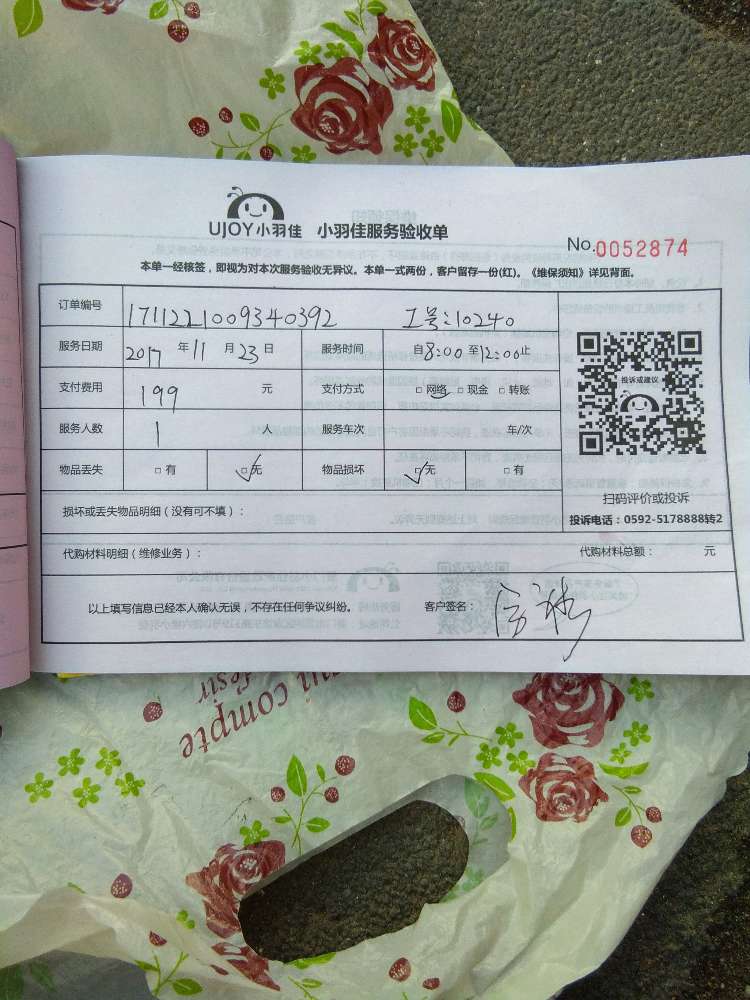 UJOY小羽佳 小羽佳服务验收单
No.0052874
本单一经核签，即视为对本次服务验收无异议。本单一式两份，客户留存一份(红)。《维保须知》详见背面。
订单编号 1711221009340392 工号:10240
服务日期 2017 年 11 月 23 日 服务时间 自8:00至12:00止
支付费用 199 元 支付方式 □网络 □现金 □转账
投诉或建议
服务人数 1 人 服务车次 年/次
物品丢失 □有 □无 物品损坏 □无 □有
扫码评价或投诉
损坏或丢失物品明细（没有可不填）：
投诉电话：0592-5178888转2
代购材料明细（维修业务）： 代购材料总额： 元
以上填写信息已经本人确认无误，不存在任何争议纠纷。 客户签名：
compte